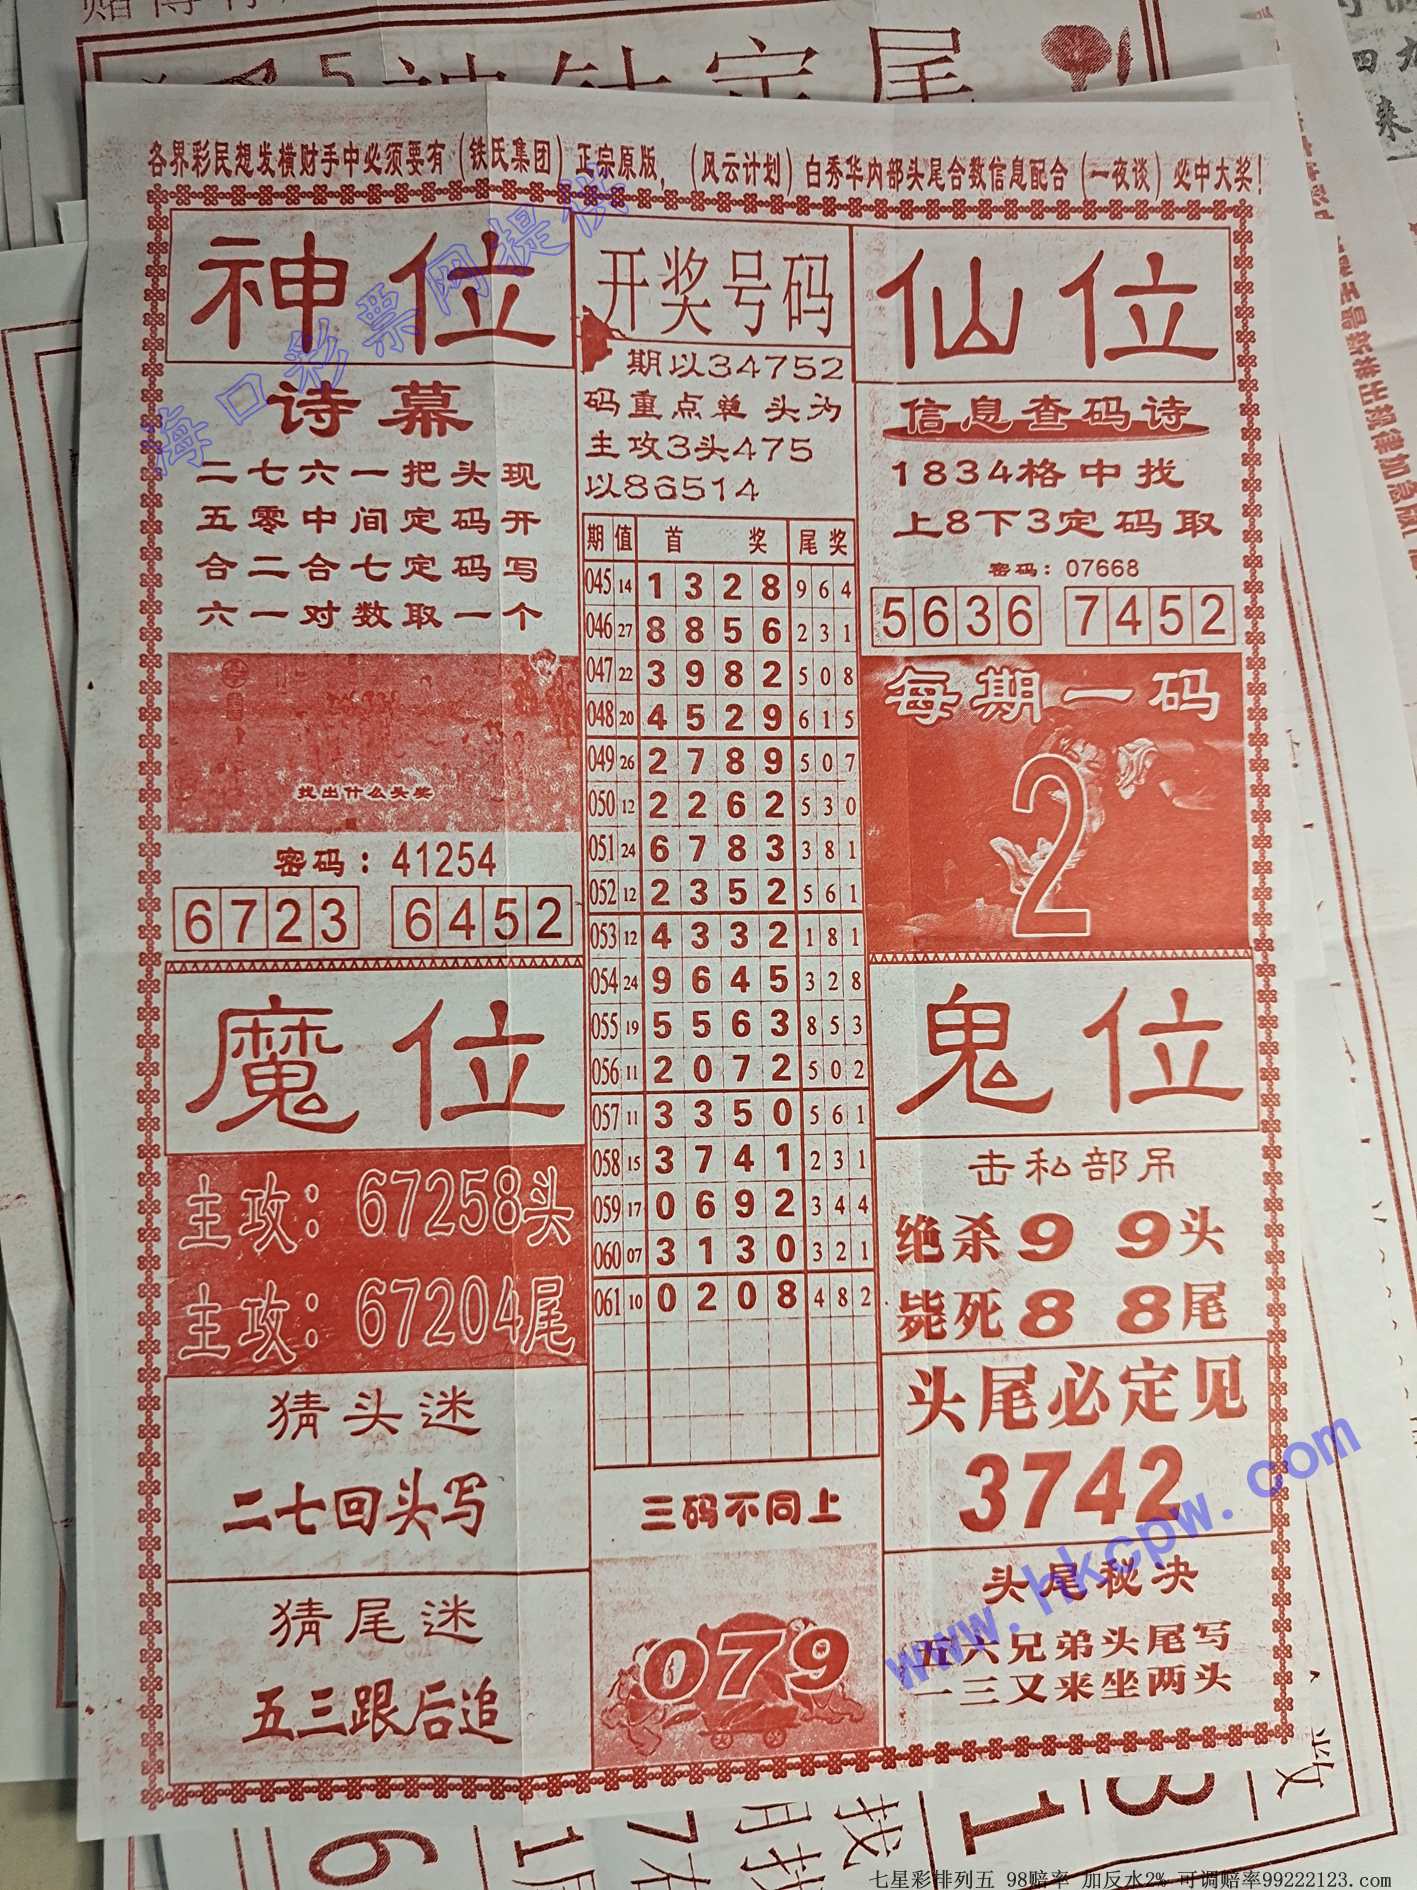 各界彩民想发横财手中必须要有（铁氏集团）正宗原版，（风云计划）白秀华内部头尾合数信息配合（一夜谈）必中大奖！
神位
诗幕
二七六一把头现
五零中间定码开
合二合七定码写
六一对数取一个
找出什么头奖
密码：41254
6723 6452
魔位
主攻：67258头
主攻：67204尾
猜头迷
二七回头写
猜尾迷
五三跟后追
开奖号码
期以34752
码重点单 头为
主攻3头475
以86514
期 值 首 奖 尾 奖
045 14 1 3 2 8 9 6 4
046 27 8 8 5 6 2 3 1
047 22 3 9 8 2 5 0 8
048 20 4 5 2 9 6 1 5
049 26 2 7 8 9 5 0 7
050 12 2 2 6 2 5 3 0
051 24 6 7 8 3 3 8 1
052 12 2 3 5 2 5 6 1
053 12 4 3 3 2 1 8 1
054 24 9 6 4 5 3 2 8
055 19 5 5 6 3 8 5 3
056 11 2 0 7 2 5 0 2
057 11 3 3 5 0 5 6 1
058 15 3 7 4 1 2 3 1
059 17 0 6 9 2 3 4 4
060 07 3 1 3 0 3 2 1
061 10 0 2 0 8 4 8 2
三码不同上
079
仙位
信息查码诗
1834格中找
上8下3定码取
密码：07668
5636 7452
每期一码
2
鬼位
击私部吊
绝杀9 9头
毙死8 8尾
头尾必定见
3742
头尾秘决
五六兄弟头尾写
一三又来坐两头
海口彩票网提供
www.hkcpw.com
七星彩排列五 98赔率 加反水2% 可调赔率99222123.com